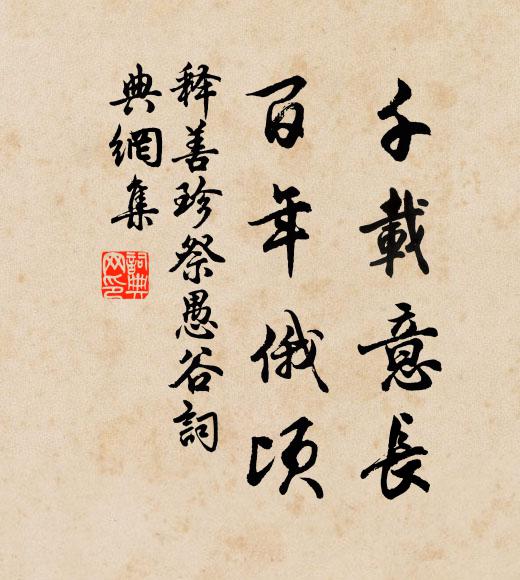 千載意長
百年俄頃
释善珍祭愚谷詞
典網集
詞典網印